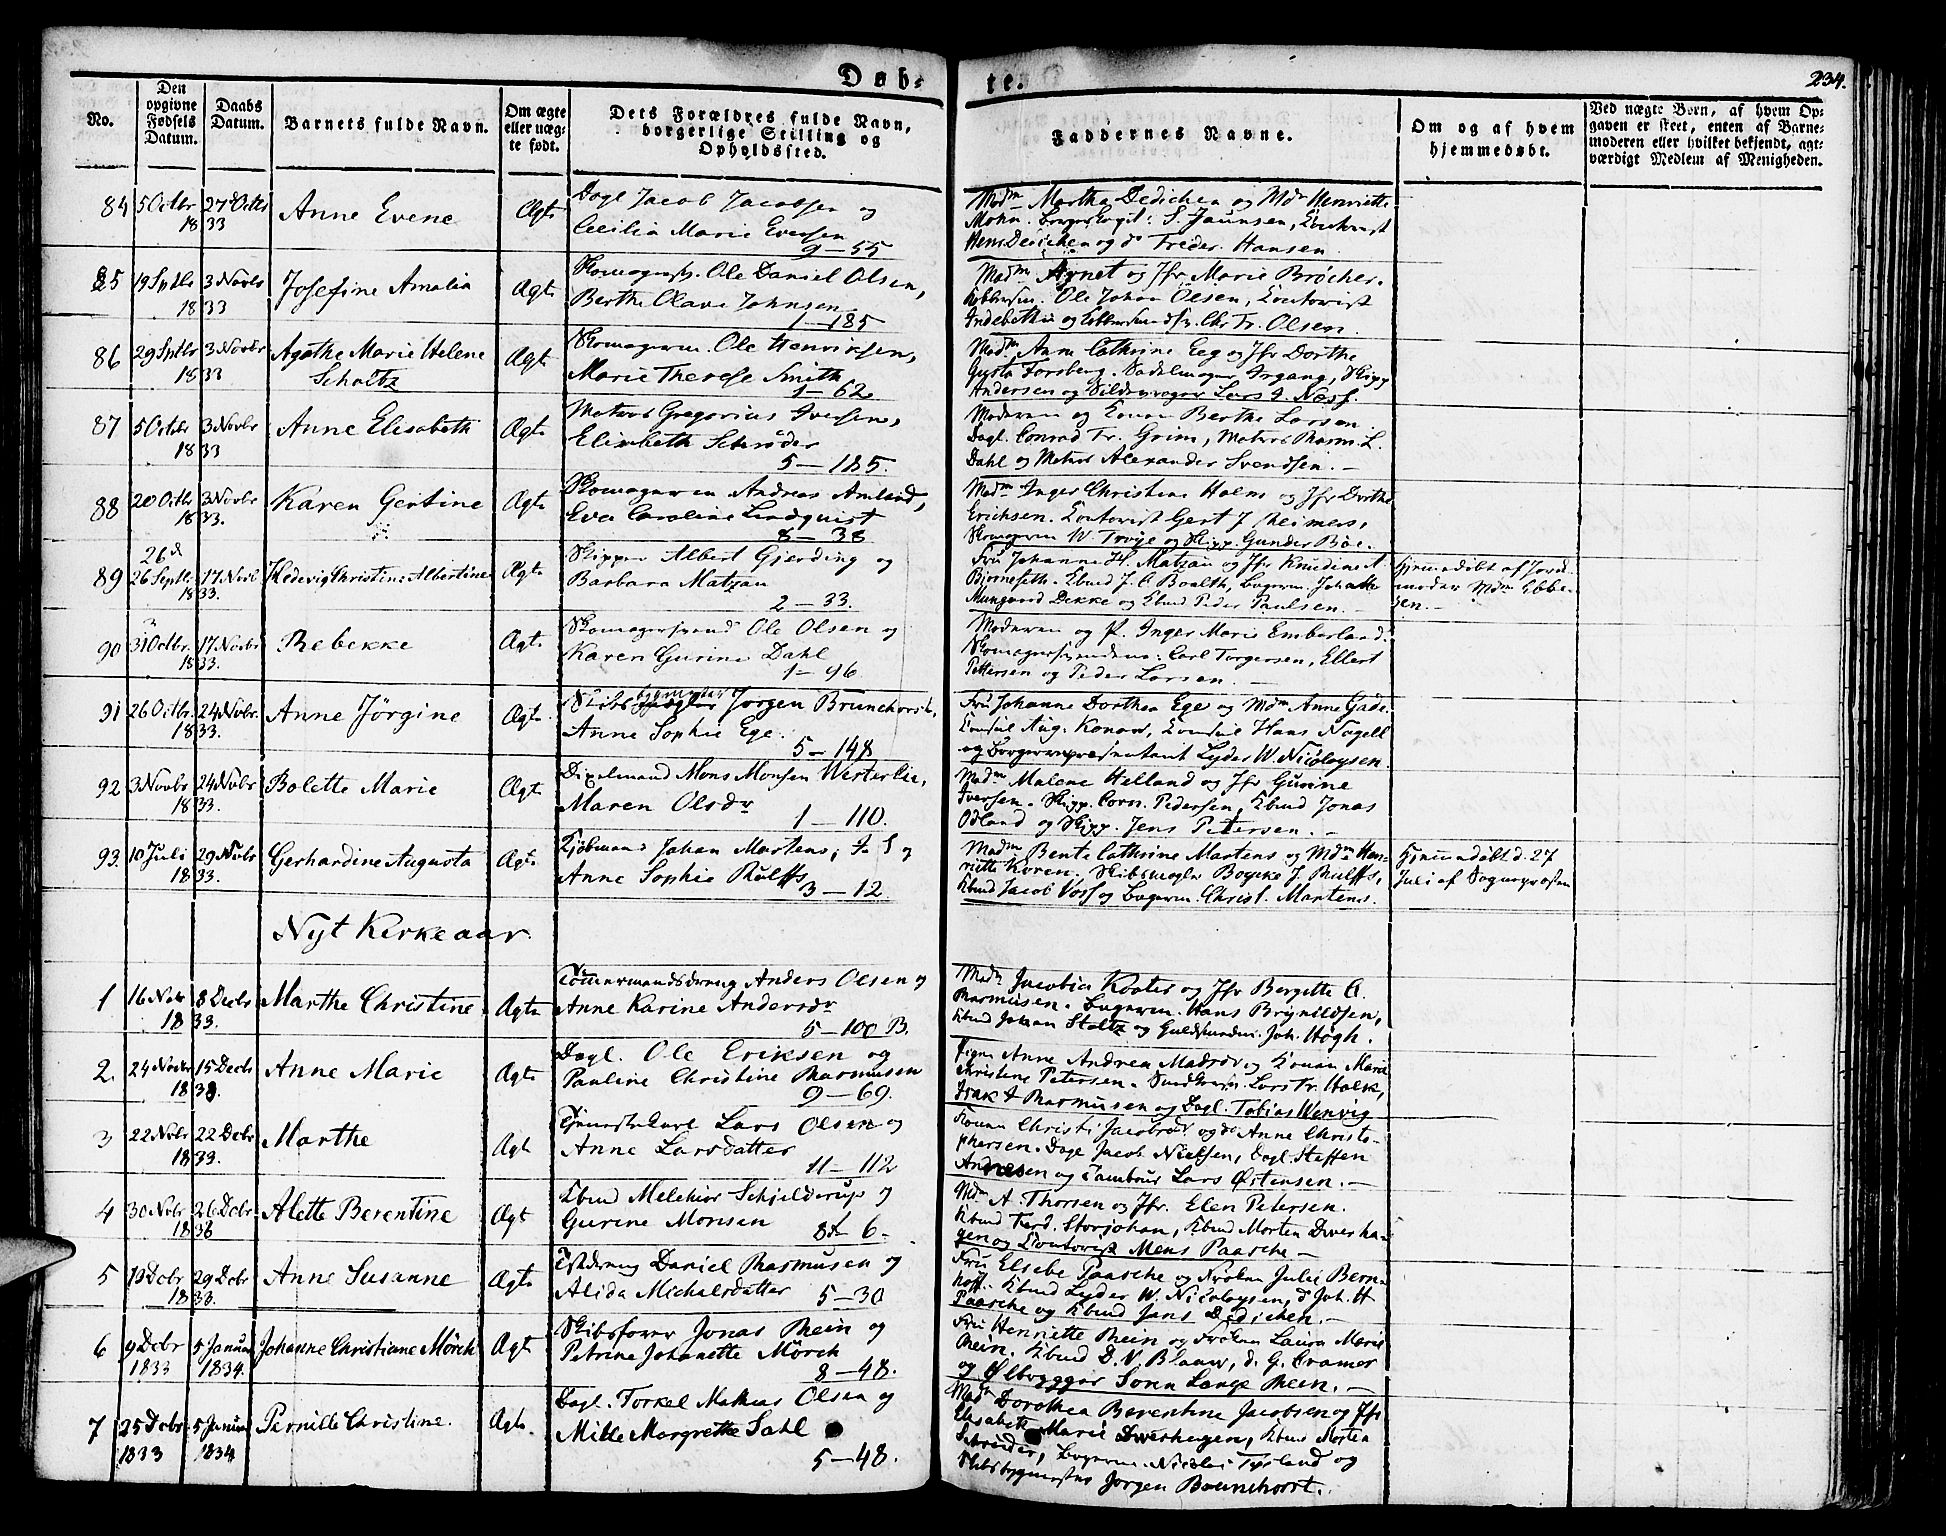 Døb-
te.
234.
No.
Den opgivne Fødsels Datum.
Daabs Datum.
Barnets fulde Navn.
Om ægte eller uæg-te født.
Dets Forældres fulde Navn, borgerlige Stilling og Opholdssted.
Faddernes Navne.
Om og af hvem hjemmedøbt.
Ved uægte Børn, af hvem Op-
gaven er skeet, enten af Barne-
moderen eller hvilket bekjendt, agt-
værdigt Medlem af Menigheden.
84 5 Octbr 1833 27de Octbr Anne Evene Ægte
Dagl Jacob Jacobsen og
Cecilia Marie Eversen
9 - 55
Madm Martha Dedichen og Mdm Henriette
Mohn. S. Jaunsen,
Dedichen og do Freder. Hansen
85 19 Septbr 1833 3 Novbr Josefine Amalia Ægte
Ole Daniel Olsen,
Berthe Olave Johnsen
1 - 185
Madm Agnet og Jfr Marie Brøcher.
Ole Johan Olsen, Contorist
Chr Fr. Olsen.
86 29 Septbr 1833 3 Novbr Agathe Marie Helene
Scholtz Ægte
Skomagerm. Ole Henriksen,
Marie Therese Smith
1 - 62
Madm Anne Cathrine Eeg og Jfr Dorthe
Forsberg. Sadelmager Irgang, Skipp
Andersen og Lars J. Næss.
87 5 Octbr 1833 3 Novbr Anne Elisabeth Ægte
Matros Gregorius Iversen,
Elisabeth Schrøder
5 - 185.
Moderen og Konen Berthe Larsen
Dagl. Conrad Fr. Grim, Matros Rasm. L.
Dahl og Matros Alexander Svendsen. -
88 20 Octbr 1833. 3 Novbr Karen Gertine Ægte
Skomagerm Andreas Amland,
Eva Caroline Lindquist
8 - 38
Madm Inger Christine Holm og Jfr Dorthe
Erichsen. Contorist Gert J Reimers,
Skomagerm W. Troye og Skipp. Gunder Bøe.
26 d
89 26 Septbr 1833. 17 Novbr Hedevig Christine Albertine Ægte
Skipper Albert Gjerding og
Barbara Matzau
2 - 33.
Fru Johanne H. Matzau og Jfr Knudine A
Bjørneseth. Kbmd J. C. Boalth, Bagerm. Johan
Mungaard Dekke og Kbmd Peder Paulsen. -
Hjemmedøbt af Jord-
moder Mdm Ebbe-
sen. -
90 31 Octbr 1833. 17 Novbr Rebekke Ægte
Skomagersvend Ole Olsen og
Karen Gurine Dahl
1 - 96
Moderen og P. Inger Marie Emberland.
Skomagersvendene: Carl Torgersen, Ellert
Pettersen og Peder Larsen. -
91 26 Octbr 1833. 24 Novbr. Anne Jørgine Ægte
Skibsbygmester Jørgen Brunchorst,
Anne Sophie Ege.
5 - 148
Fru Johanne Dorthea Ege og Mdm Anne Gade.
Consul Aug. Konow, Consul Hans Nagell
og Borgerrepræsentant Lyder W. Nicolaysen.
92 3 Novbr 1833. 24 Novbr Bolette Marie Ægte
Mons Monsen Westerlie,
Maren Olsdr
1 - 110.
Madm Malene Helland og Jfr Gunine
Iversen. Skipp. Corn. Pedersen, Kbmd Jonas
Odland og Skipp. Jens Petersen. -
93. 10 Juli 1833. 29 Novbr Gerhardine Augusta Ægte
Kjøbmand Johan Martens, og
Anne Sophie Rulffs
3 - 12
Madm Bente Cathrine Martens og Mdm Hen-
riette Koren. Skibsmægler Boycke J. Rulffs,
Kbmd Jacob Voss og Bagerm. Christ. Martens.
Hjemmedøbt d. 27
Juli af Sognepræsten
Nyt Kirkeaar.
1 16 Novbr 1833. 8 Decbr Marthe Christine Ægte
Tømmermandsdreng Anders Olsen og
Anne Karine Andersdr
5 - 100 B.
Madm Jacobia Koster og Jfr Bergitte A.
Rasmusen. Bagerm. Hans Brynildsen,
Kbmd Johan Stoltz og Guldsmedm. Joh. Høgh.
2. 24 Novbr 1833. 15 Decbr Anne Marie Ægte
Dagl. Ole Eriksen og
Pauline Christine Rasmusen
9 - 69.
Pigen Anne Andrea Madsdr og Konen Marie
Christine Petersen. Lars Fr. Holck,
Isak A Rasmusen og Dagl. Tobias Wenvig
3 22 Novbr 1833. 22 Decbr Marthe Ægte
Tjenestekarl Lars Olsen og
Anne Larsdatter
11 - 112
Konen Christi Jacobsdr og do Anne Christo-
phersen. Dagl Jacob Nielsen, Dagl. Steffen
Andresen og Tambour Lars Østensen. -
4 30 Novbr 1833 26 Decbr. Alette Berentine Ægte
Kbmd Melchior Schjelderup og
Gurine Monsen
8 A 6 -
Mdm A Thorsen og Jfr. Elen Petersen.
Kbmd Ferd. Storjohan, Kbmd Morten Dverha-
gen og Contorist Mens Paasche -
5 10 Decbr 1833. 29 Decbr Anne Susanne Ægte
Daniel Rasmusen og
Alida Michalsdatter
5 - 30
Fru Elsebe Paasche og Frøken Julie Bern-
hoft. Kbmd Lyder W. Nicolaysen, do Joh. H
Paasche og Kbmd Jans Dedichen. -
6 9 Decbr 1833 5 Januar 1834. Johanne Christiane Mörch Ægte
Skibsfører Jonas Rein og
Petrine Johanette Mörch
8 - 48.
Fru Henriette Rein og Frøken Laura Marie
Rein. Kbmd D. V. Blaauw, d. G. Cramer
og Ølbrygger Sonn Lange Rein. -
7 25 Decbr 1833 5 Januar 1834 Pernille Christine. Ægte
Dagl. Torkel Mathias Olsen og
Mille Margrethe Dahl
5 - 48.
Madm Dorothea Berentine Jacobsen og Jfr
Elisabeth Marie Dverhagen, Kbmd Morten
Schreider, Bagerm. Nicolai Tysland og
Skibsbygmester Jørgen Brunchorst.